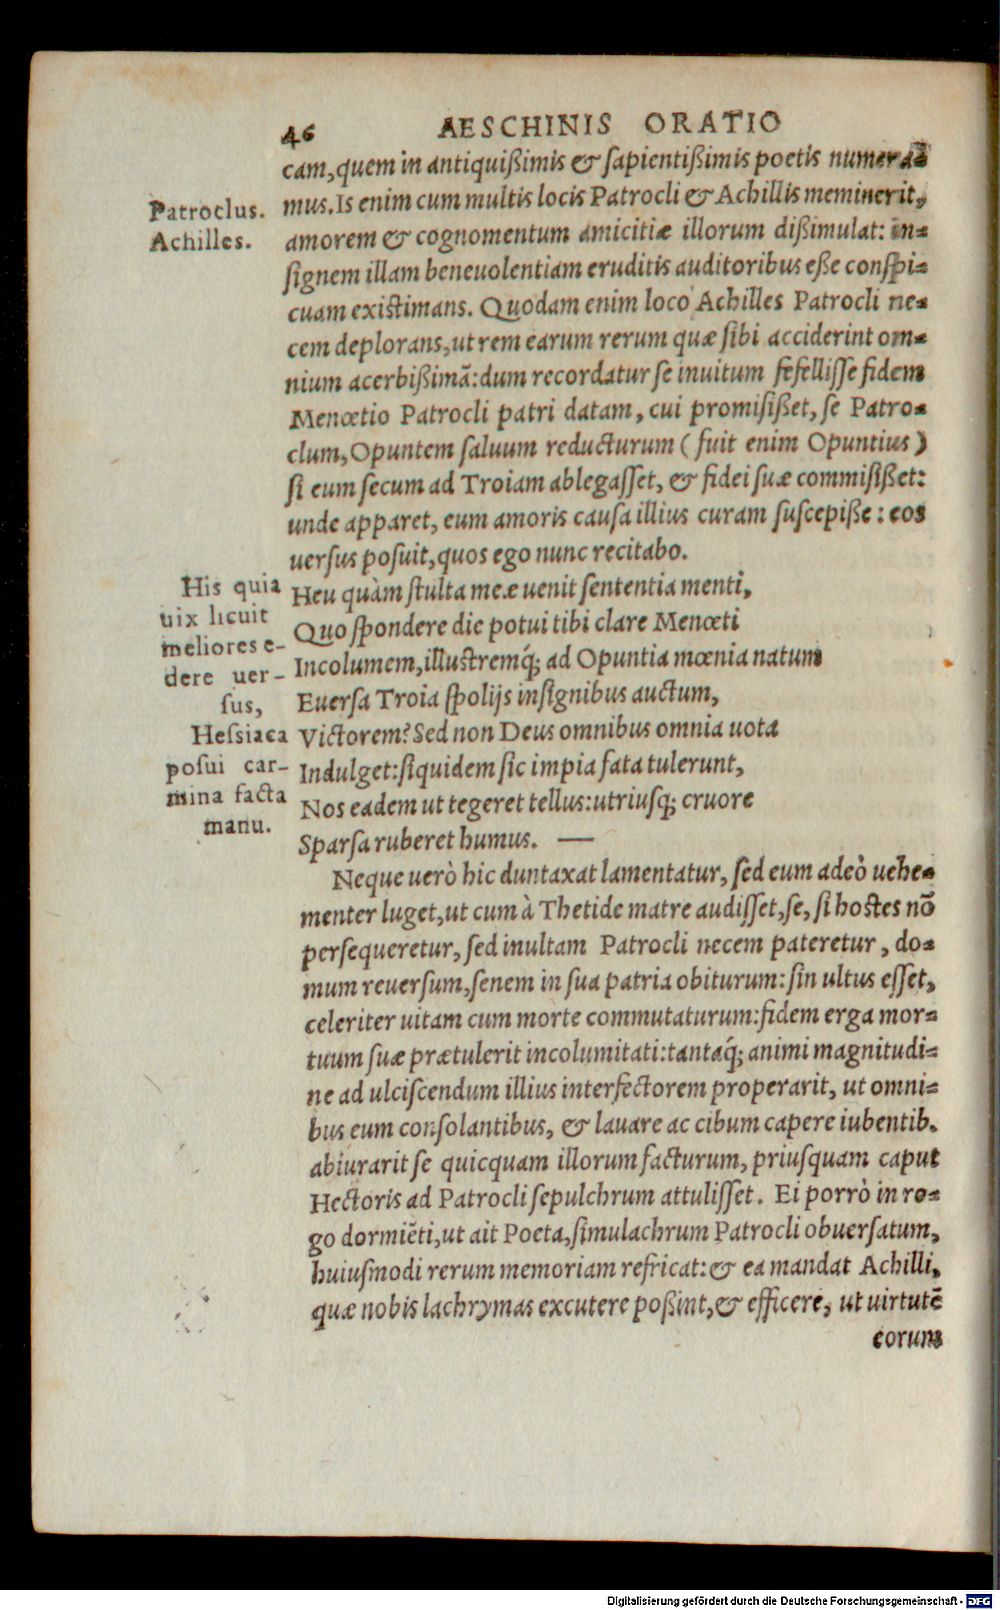 46 AESCHINIS ORATIO
cam, quem in antiquißimis & ſapientißimis poetis numera-
mus. Is enim cum multis locis Patrocli & Achillis meminerit,
Patroclus.
Achilles.
amorem & cognomentum amicitiæ illorum dißimulat: in-
ſignem illam beneuolentiam eruditis auditoribus eße conſpi-
cuam existimans. Quodam enim loco Achilles Patrocli ne-
cem deplorans, ut rem earum rerum quæ ſibi acciderint om-
nium acerbißimã: dum recordatur ſe inuitum fefelliſſe fidem
Menœtio Patrocli patri datam, cui promiſißet, ſe Patro-
clum, Opuntem ſaluum reducturum ( fuit enim Opuntius )
ſi eum ſecum ad Troiam ablegaſſet, & fidei ſuæ commiſißet:
unde apparet, eum amoris cauſa illius curam ſuſcepiße: eos
uerſus poſuit, quos ego nunc recitabo.
His quia
uix licuit
meliores e-
dere uer-
ſus,
Heſsiaca
poſui car-
mina facta
manu.
Heu quàm ſtulta meæ uenit ſententia menti,
Quo ſpondere die potui tibi clare Menœti
Incolumem, illuſtremq́; ad Opuntia mœnia natum
Euerſa Troia ſpolijs inſignibus auctum,
Victorem? Sed non Deus omnibus omnia uota
Indulget: ſiquidem ſic impia fata tulerunt,
Nos eadem ut tegeret tellus: utriuſq; cruore
Sparſa ruberet humus. —
Neque uerò hic duntaxat lamentatur, ſed eum adeò uehe-
menter luget, ut cum à Thetide matre audiſſet, ſe, ſi hostes nõ
perſequeretur, ſed inultam Patrocli necem pateretur, do-
mum reuerſum, ſenem in ſua patria obiturum: ſin ultus eſſet,
celeriter uitam cum morte commutaturum: fidem erga mor-
tuum ſuæ prætulerit incolumitati: tantaq́; animi magnitudi-
ne ad ulciſcendum illius interfectorem properarit, ut omni-
bus eum conſolantibus, & lauare ac cibum capere iubentib.
abiurarit ſe quicquam illorum facturum, priuſquam caput
Hectoris ad Patrocli ſepulchrum attuliſſet. Ei porrò in ro-
go dormiẽti, ut ait Poeta, ſimulachrum Patrocli obuerſatum,
huiuſmodi rerum memoriam refricat: & ea mandat Achilli,
quæ nobis lachrymas excutere poßint, & efficere, ut uirtutẽ
eorum
Digitalisierung gefördert durch die Deutsche Forschungsgemeinschaft - DFG